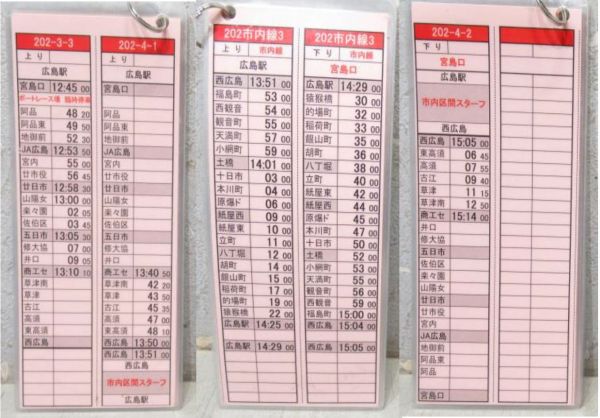 202-3-3
上り
広島駅
宮島口 12:45 00
ボートレース場 臨時停車
阿品 48 20
阿品東 49 50
地御前 52 30
JA広島 12:53 50
宮内 55 00
廿市役 56 45
廿日市 12:58 30
山陽女 13:00 00
楽々園 02 05
佐伯区 03 45
五日市 13:05 30
修大協 07 00
井口 09 05
商工セ 13:10 10
草津南
草津
古江
高須
東高須
西広島
202-4-1
上り
広島駅
宮島口
阿品
阿品東
地御前
JA広島
宮内
廿市役
廿日市
山陽女
楽々園
佐伯区
五日市
修大協
井口
商工セ 13:40 50
草津南 42 20
草津 43 50
古江 45 35
高須 47 00
東高須 48 10
西広島 13:50 00
西広島 13:51 00
西広島
市内区間スターフ
広島駅
202市内線3
上り 市内線
広島駅
西広島 13:51 00
福島町 53 00
西観音 54 00
観音町 55 00
天満町 57 00
小網町 59 00
土橋 14:01 00
十日市 03 00
本川町 04 00
原爆ド 06 00
紙屋西 09 00
紙屋東 10 00
立町 11 00
八丁堀 12 00
胡町 14 00
銀山町 15 00
稲荷町 17 00
的場町 19 00
猿猴橋 22 00
広島駅 14:25 00
広島駅 14:29 00
202市内線3
下り 市内線
宮島口
広島駅 14:29 00
猿猴橋 30 00
的場町 32 00
稲荷町 33 00
銀山町 35 00
胡町 36 00
八丁堀 38 00
立町 40 00
紙屋東 42 00
紙屋西 44 00
原爆ド 45 00
本川町 47 00
十日市 50 00
土橋 52 00
小網町 53 00
天満町 55 00
観音町 56 00
西観音 59 00
福島町 15:00 00
西広島 15:04 00
西広島 15:05 00
202-4-2
下り
宮島口
広島駅
市内区間スターフ
西広島
西広島 15:05 00
東高須 06 45
高須 07 55
古江 09 40
草津 11 15
草津南 12 50
商工セ 15:14 00
井口
修大協
五日市
佐伯区
楽々園
山陽女
廿日市
廿市役
宮内
JA広島
地御前
阿品東
阿品
宮島口